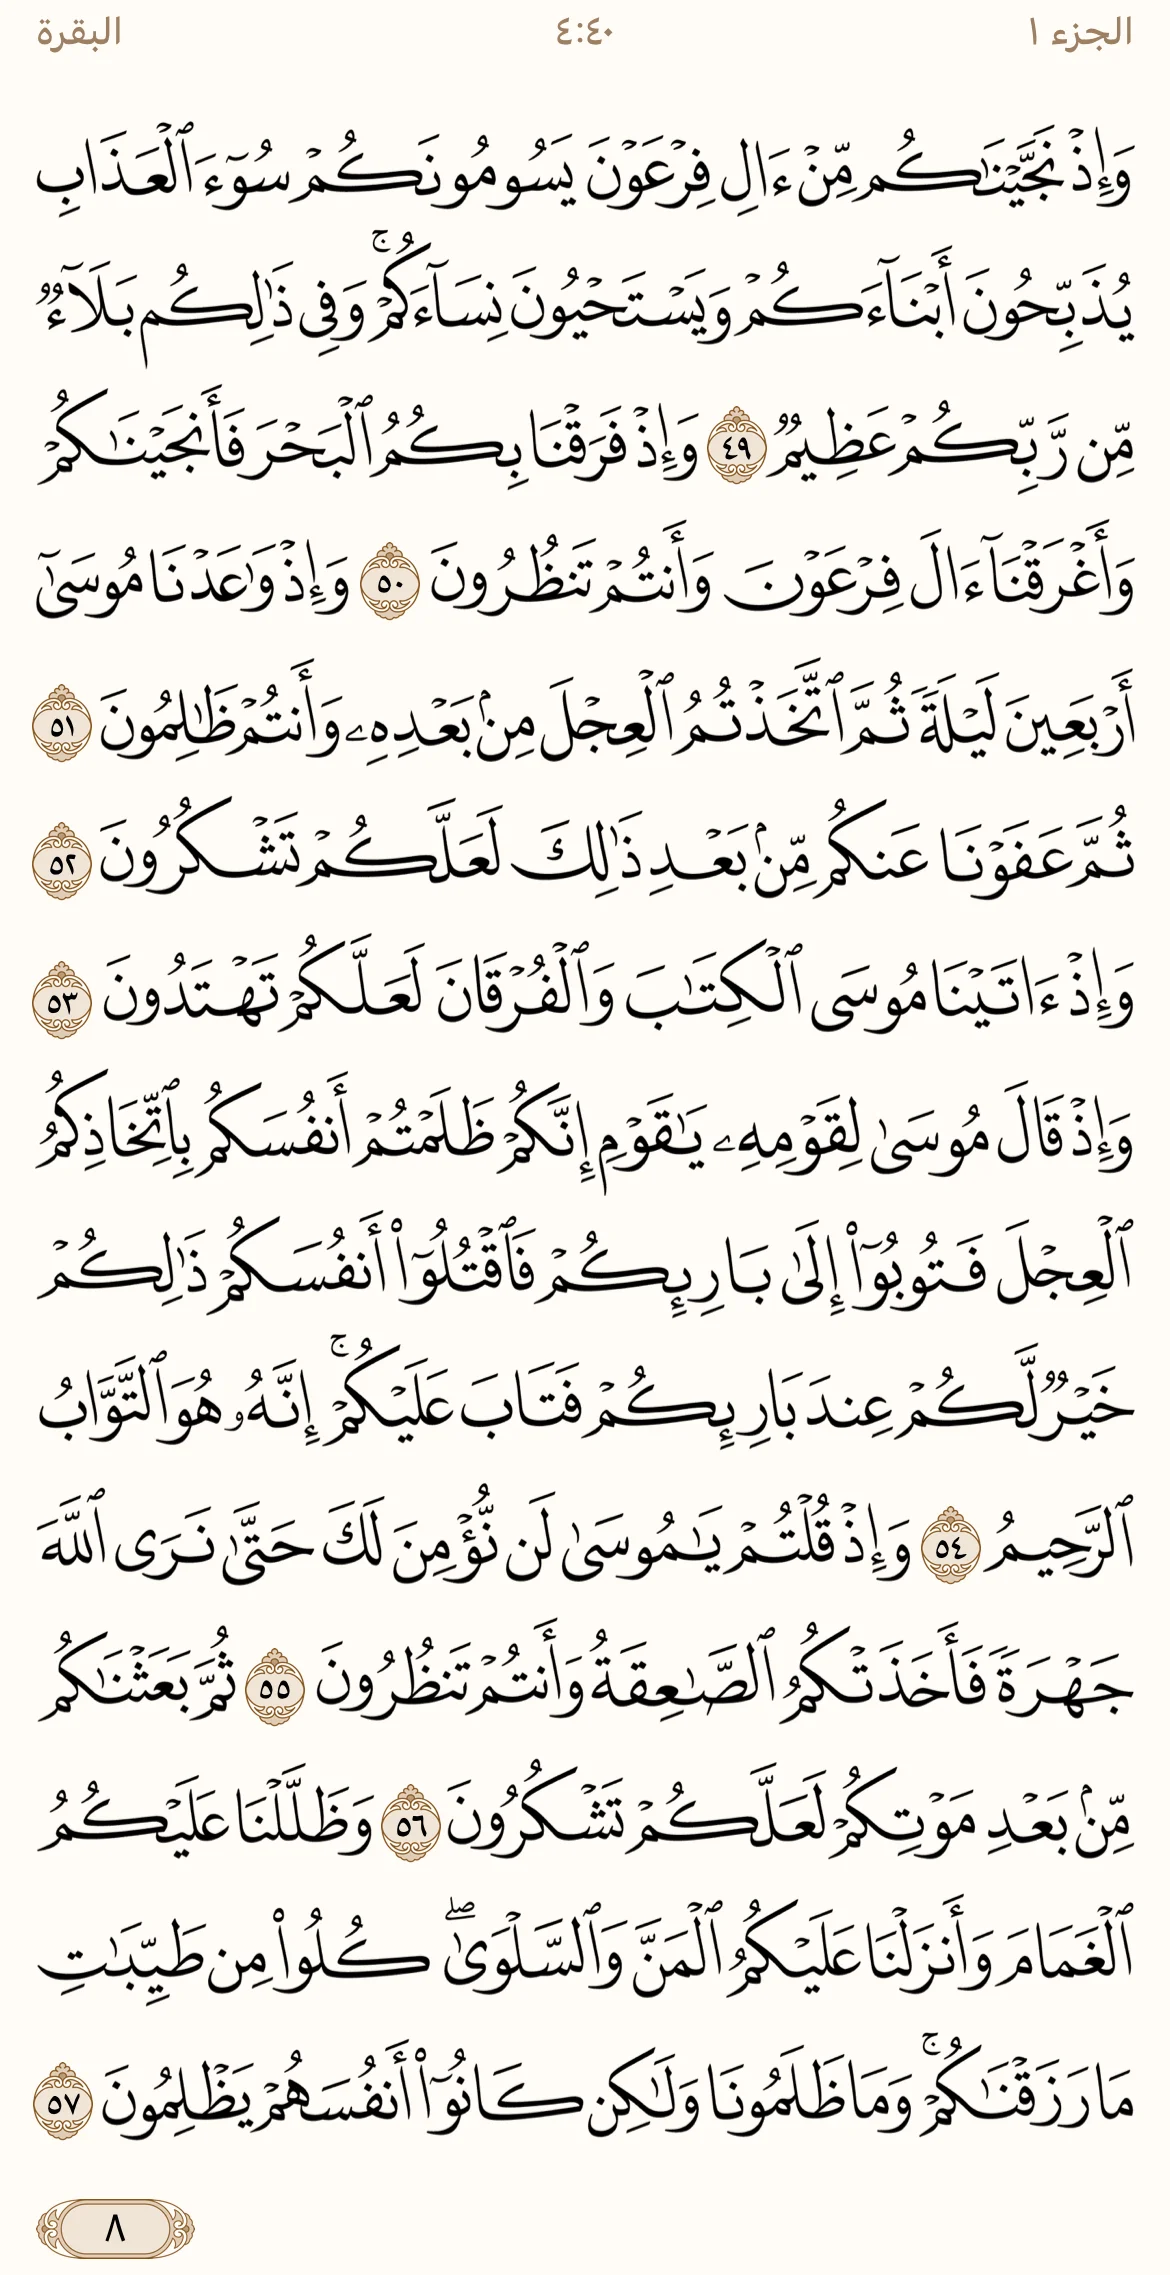 الجزء ١ ٤:٤٠ البقرة
وَإِذۡ نَجَّيۡنَٰكُم مِّنۡ ءَالِ فِرۡعَوۡنَ يَسُومُونَكُمۡ سُوٓءَ ٱلۡعَذَابِ
يُذَبِّحُونَ أَبۡنَآءَكُمۡ وَيَسۡتَحۡيُونَ نِسَآءَكُمۡۚ وَفِي ذَٰلِكُم بَلَآءٞ
مِّن رَّبِّكُمۡ عَظِيمٞ ٤٩ وَإِذۡ فَرَقۡنَا بِكُمُ ٱلۡبَحۡرَ فَأَنجَيۡنَٰكُمۡ
وَأَغۡرَقۡنَآ ءَالَ فِرۡعَوۡنَ وَأَنتُمۡ تَنظُرُونَ ٥٠ وَإِذۡ وَٰعَدۡنَا مُوسَىٰٓ
أَرۡبَعِينَ لَيۡلَةٗ ثُمَّ ٱتَّخَذۡتُمُ ٱلۡعِجۡلَ مِنۢ بَعۡدِهِۦ وَأَنتُمۡ ظَٰلِمُونَ ٥١
ثُمَّ عَفَوۡنَا عَنكُم مِّنۢ بَعۡدِ ذَٰلِكَ لَعَلَّكُمۡ تَشۡكُرُونَ ٥٢
وَإِذۡ ءَاتَيۡنَا مُوسَى ٱلۡكِتَٰبَ وَٱلۡفُرۡقَانَ لَعَلَّكُمۡ تَهۡتَدُونَ ٥٣
وَإِذۡ قَالَ مُوسَىٰ لِقَوۡمِهِۦ يَٰقَوۡمِ إِنَّكُمۡ ظَلَمۡتُمۡ أَنفُسَكُم بِٱتِّخَاذِكُمُ
ٱلۡعِجۡلَ فَتُوبُوٓاْ إِلَىٰ بَارِئِكُمۡ فَٱقۡتُلُوٓاْ أَنفُسَكُمۡ ذَٰلِكُمۡ
خَيۡرٞ لَّكُمۡ عِندَ بَارِئِكُمۡ فَتَابَ عَلَيۡكُمۡۚ إِنَّهُۥ هُوَ ٱلتَّوَّابُ
ٱلرَّحِيمُ ٥٤ وَإِذۡ قُلۡتُمۡ يَٰمُوسَىٰ لَن نُّؤۡمِنَ لَكَ حَتَّىٰ نَرَى ٱللَّهَ
جَهۡرَةٗ فَأَخَذَتۡكُمُ ٱلصَّٰعِقَةُ وَأَنتُمۡ تَنظُرُونَ ٥٥ ثُمَّ بَعَثۡنَٰكُم
مِّنۢ بَعۡدِ مَوۡتِكُمۡ لَعَلَّكُمۡ تَشۡكُرُونَ ٥٦ وَظَلَّلۡنَا عَلَيۡكُمُ
ٱلۡغَمَامَ وَأَنزَلۡنَا عَلَيۡكُمُ ٱلۡمَنَّ وَٱلسَّلۡوَىٰۖ كُلُواْ مِن طَيِّبَٰتِ
مَا رَزَقۡنَٰكُمۡۚ وَمَا ظَلَمُونَا وَلَٰكِن كَانُوٓاْ أَنفُسَهُمۡ يَظۡلِمُونَ ٥٧
٨